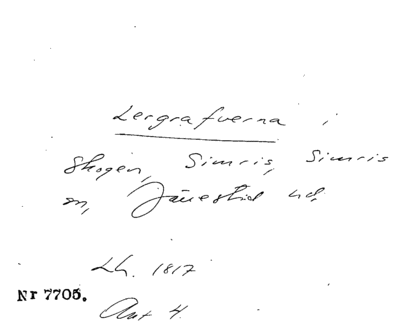 Lergrafverna i
Skogen, Simris, Simris
sn, Järrestad hd,
Lh. 1817
Nr 7705.
Akt 4.